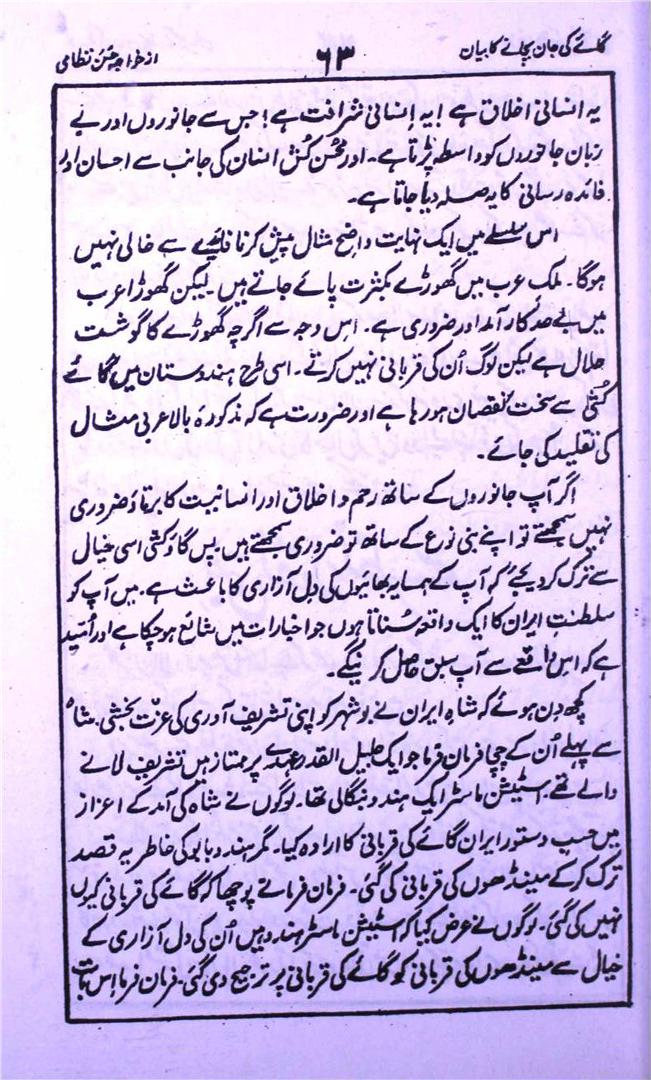 گائے کی جان بچانے کا بیان ۶۳ از خواجہ حسن نظامی
یہ انسانی اخلاق ہے! یہ انسانی شرافت ہے! جس سے جانوروں اور بے
زبان جانوروں کو واسطہ پڑتا ہے۔ اور محسن کش انسان کی جانب سے احسان اور
فائدہ رسانی کا یہ صلہ دیا جاتا ہے۔
اس سلسلے میں ایک نہایت واضح مثال پیش کرنا فائدے سے خالی نہیں
ہوگا۔ ملک عرب میں گھوڑے بکثرت پائے جاتے ہیں۔ لیکن گھوڑا عرب
میں بے حد کار آمد اور ضروری ہے۔ اس وجہ سے اگرچہ گھوڑے کا گوشت
حلال ہے لیکن لوگ اُن کی قربانی نہیں کرتے۔ اسی طرح ہندوستان میں گائے
کُشی سے سخت نقصان ہو رہا ہے اور ضرورت ہے کہ مذکورہ بالا عربی مثال
کی تقلید کی جائے۔
اگر آپ جانوروں کے ساتھ رحم و اخلاق اور انسانیت کا برتاؤ ضروری
نہیں سمجھتے تو اپنے بنی نوع کے ساتھ تو ضروری سمجھتے ہیں۔ پس گاؤکشی اسی خیال
سے ترک کر دیجئے کہ آپ کے ہمسایہ بھائیوں کی دل آزاری کا باعث ہے۔ میں آپ کو
سلطنتِ ایران کا ایک واقعہ سُناتا ہوں جو اخبارات میں شائع ہو چکا ہے اور اُمید
ہے کہ اس واقعے سے آپ سبق حاصل کرینگے۔
کچھ دن ہوئے کہ شاہِ ایران نے بوشہر کو اپنی تشریف آوری کی عزّت بخشی۔ شاہ
سے پہلے اُن کے چچا فرمان فرما جو ایک جلیل القدر عہدے پر ممتاز ہیں تشریف لانے
والے تھے۔ اسٹیشن ماسٹر ایک ہندو بنگالی تھا۔ لوگوں نے شاہ کی آمد کے اعزاز
میں حسب دستور ایران گائے کی قربانی کا ارادہ کیا۔ مگر ہندو بابو کی خاطر یہ قصد
ترک کر کے مینڈھوں کی قربانی کی گئی۔ فرمان فرما نے پوچھا کہ گائے کی قربانی کیوں
نہیں کی گئی۔ لوگوں نے عرض کیا کہ اسٹیشن ماسٹر ہندو ہیں اُن کی دل آزاری کے
خیال سے مینڈھوں کی قربانی کو گائے کی قربانی پر ترجیح دی گئی۔ فرمان فرما اس بات